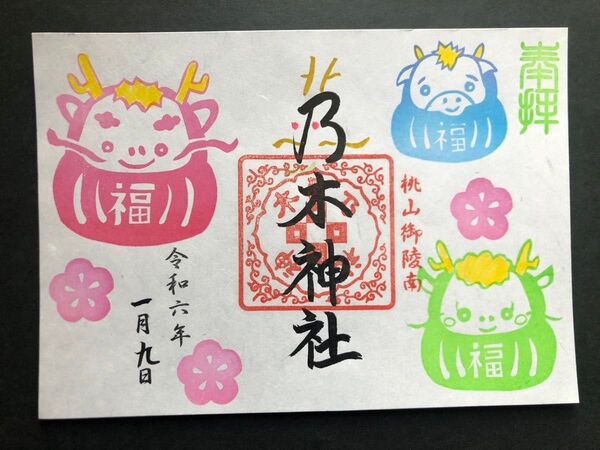 奉拝
桃山御陵南
乃木神社
令和六年
一月九日
福
福
福